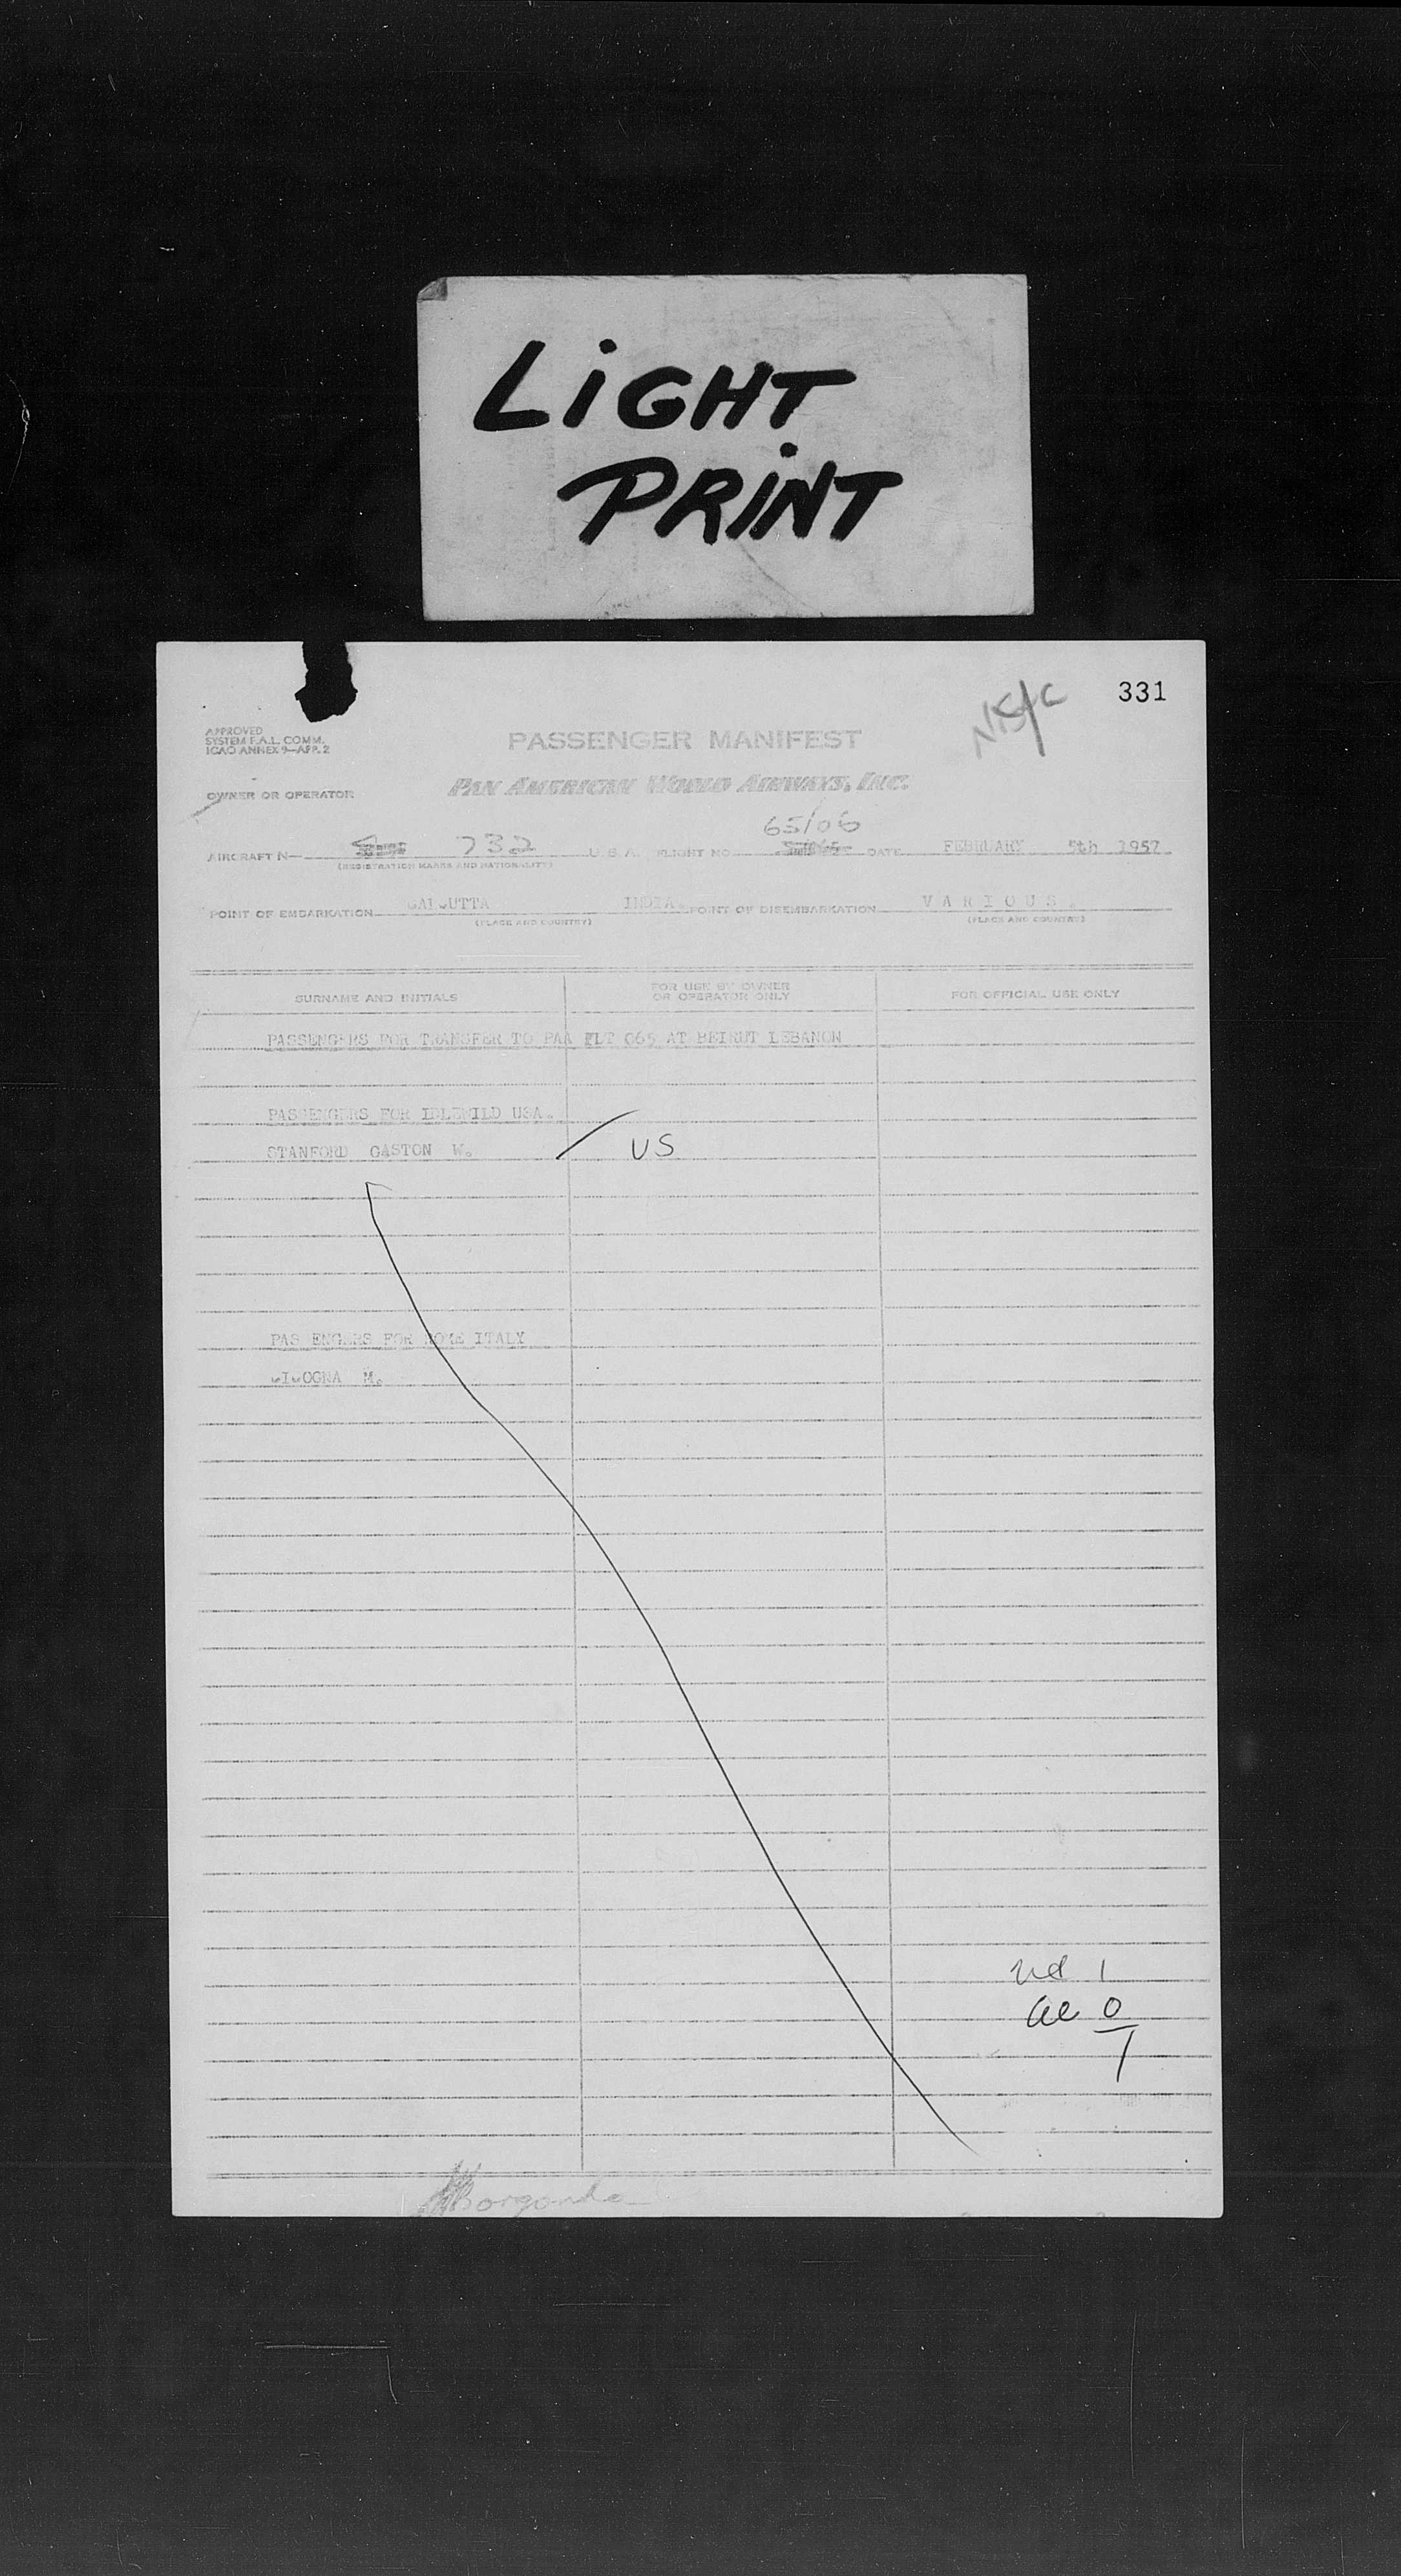 LiGHT
PRiNT
331
APPROVED
SYSTEM F.A.L. COMM.
ICAO ANNEX 9—APP. 2
PASSENGER MANIFEST
OWNER OR OPERATOR
PAN AMERICAN WORLD AIRWAYS, INC.
65/06
AIRCRAFT N— 732 U. S. A. FLIGHT NO. DATE FEBRUARY 5th 1957
(REGISTRATION MARKS AND NATIONALITY)
POINT OF EMBARKATION CALCUTTA INDIA. POINT OF DISEMBARKATION V A R I O U S .
(PLACE AND COUNTRY) (PLACE AND COUNTRY)
SURNAME AND INITIALS
FOR USE BY OWNER
OR OPERATOR ONLY
FOR OFFICIAL USE ONLY
PASSENGERS FOR TRANSFER TO PAA FLT 065 AT BEIRUT LEBANON
PASSENGERS FOR IDLEWILD USA.
STANFORD GASTON W. US
PASSENGERS FOR ROME ITALY
M.
1
0
1